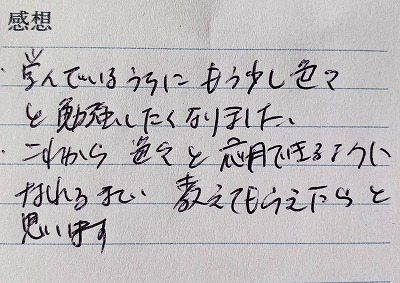 感想
・学んでいるうちに もう少し色々
と勉強したくなりました。
・これから 色々と応用できるように
なれるまで 教えてもらえたらと
思います